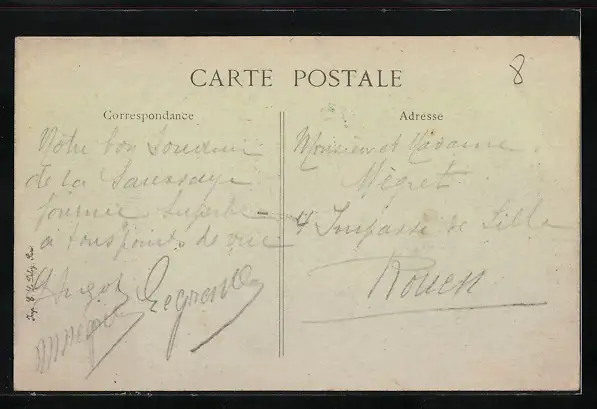 CARTE POSTALE
8
Correspondance
Notre bon Souvenir
de la Saussaye
journée Superbe
a tous points de vue
Legrand
Adresse
Monsieur et Madame
Mégret
4 Impasse de Lille
Rouen